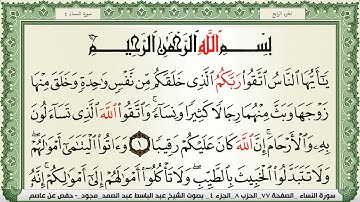 الجزء الرابع
سورة النساء ٤
بِسْمِ اللَّهِ الرَّحْمَٰنِ الرَّحِيمِ
يَا أَيُّهَا النَّاسُ اتَّقُوا رَبَّكُمُ الَّذِي خَلَقَكُم مِّن نَّفْسٍ وَاحِدَةٍ وَخَلَقَ مِنْهَا
زَوْجَهَا وَبَثَّ مِنْهُمَا رِجَالًا كَثِيرًا وَنِسَاءً ۚ وَاتَّقُوا اللَّهَ الَّذِي تَسَاءَلُونَ
بِهِ وَالْأَرْحَامَ ۚ إِنَّ اللَّهَ كَانَ عَلَيْكُمْ رَقِيبًا ١ وَآتُوا الْيَتَامَىٰ أَمْوَالَهُمْ ۖ
وَلَا تَتَبَدَّلُوا الْخَبِيثَ بِالطَّيِّبِ ۖ وَلَا تَأْكُلُوا أَمْوَالَهُمْ إِلَىٰ أَمْوَالِكُمْ ۚ إِنَّهُ
سورة النساء _ الصفحة ٧٧ _ الحزب ٨ _ الجزء ٤ _ بصوت الشيخ عبد الباسط عبد الصمد _ مجود - حفص عن عاصم